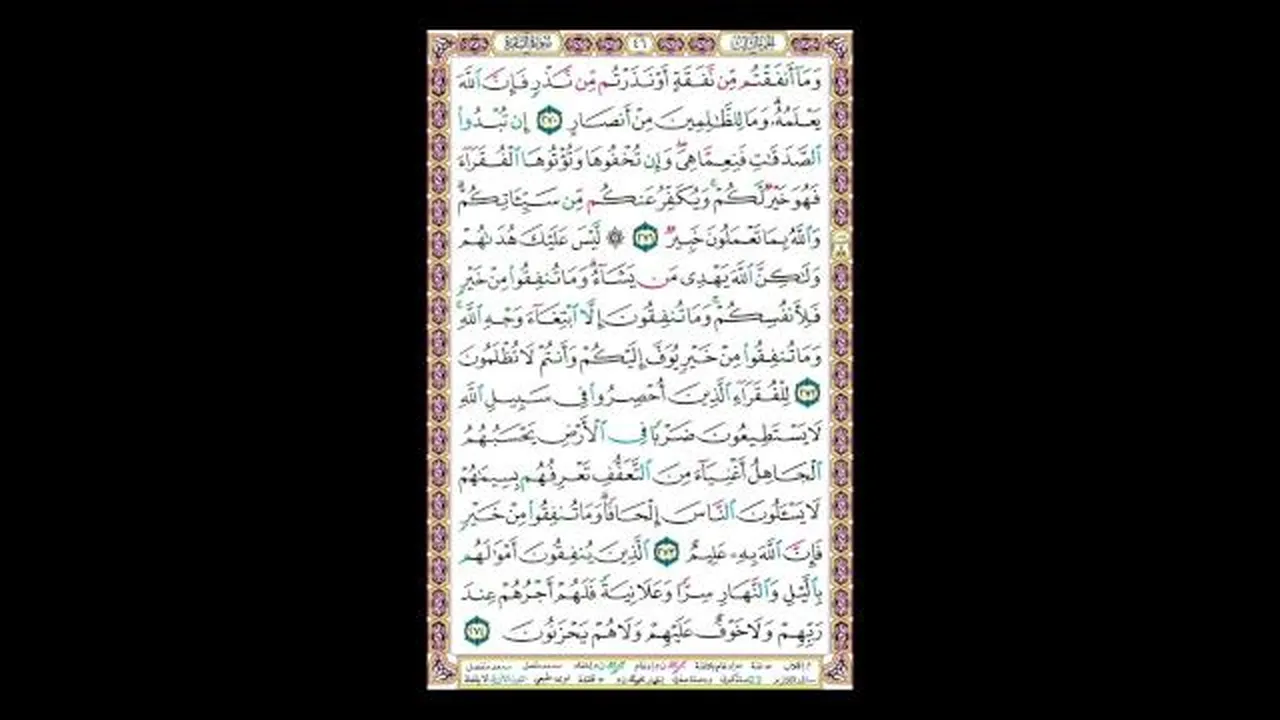 سورة البقرة ٤٦ الجزء الثالث
وَمَآ أَنفَقْتُم مِّن نَّفَقَةٍ أَوْ نَذَرْتُم مِّن نَّذْرٍ فَإِنَّ ٱللَّهَ
يَعْلَمُهُۥ وَمَا لِلظَّٰلِمِينَ مِنْ أَنصَارٍ ٢٧٠ إِن تُبْدُوا۟
ٱلصَّدَقَٰتِ فَنِعِمَّا هِىَ ۖ وَإِن تُخْفُوهَا وَتُؤْتُوهَا ٱلْفُقَرَآءَ
فَهُوَ خَيْرٌ لَّكُمْ ۚ وَيُكَفِّرُ عَنكُم مِّن سَيِّـَٔاتِكُمْ ۗ
وَٱللَّهُ بِمَا تَعْمَلُونَ خَبِيرٌ ٢٧١ ۞ لَّيْسَ عَلَيْكَ هُدَىٰهُمْ
وَلَٰكِنَّ ٱللَّهَ يَهْدِى مَن يَشَآءُ ۗ وَمَا تُنفِقُوا۟ مِنْ خَيْرٍ
فَلِأَنفُسِكُمْ ۚ وَمَا تُنفِقُونَ إِلَّا ٱبْتِغَآءَ وَجْهِ ٱللَّهِ ۚ
وَمَا تُنفِقُوا۟ مِنْ خَيْرٍ يُوَفَّ إِلَيْكُمْ وَأَنتُمْ لَا تُظْلَمُونَ
٢٧٢ لِلْفُقَرَآءِ ٱلَّذِينَ أُحْصِرُوا۟ فِى سَبِيلِ ٱللَّهِ
لَا يَسْتَطِيعُونَ ضَرْبًا فِى ٱلْأَرْضِ يَحْسَبُهُمُ
ٱلْجَاهِلُ أَغْنِيَآءَ مِنَ ٱلتَّعَفُّفِ تَعْرِفُهُم بِسِيمَٰهُمْ
لَا يَسْـَٔلُونَ ٱلنَّاسَ إِلْحَافًا ۗ وَمَا تُنفِقُوا۟ مِنْ خَيْرٍ
فَإِنَّ ٱللَّهَ بِهِۦ عَلِيمٌ ٢٧٣ ٱلَّذِينَ يُنفِقُونَ أَمْوَٰلَهُم
بِٱلَّيْلِ وَٱلنَّهَارِ سِرًّا وَعَلَانِيَةً فَلَهُمْ أَجْرُهُمْ عِندَ
رَبِّهِمْ وَلَا خَوْفٌ عَلَيْهِمْ وَلَا هُمْ يَحْزَنُونَ ٢٧٤